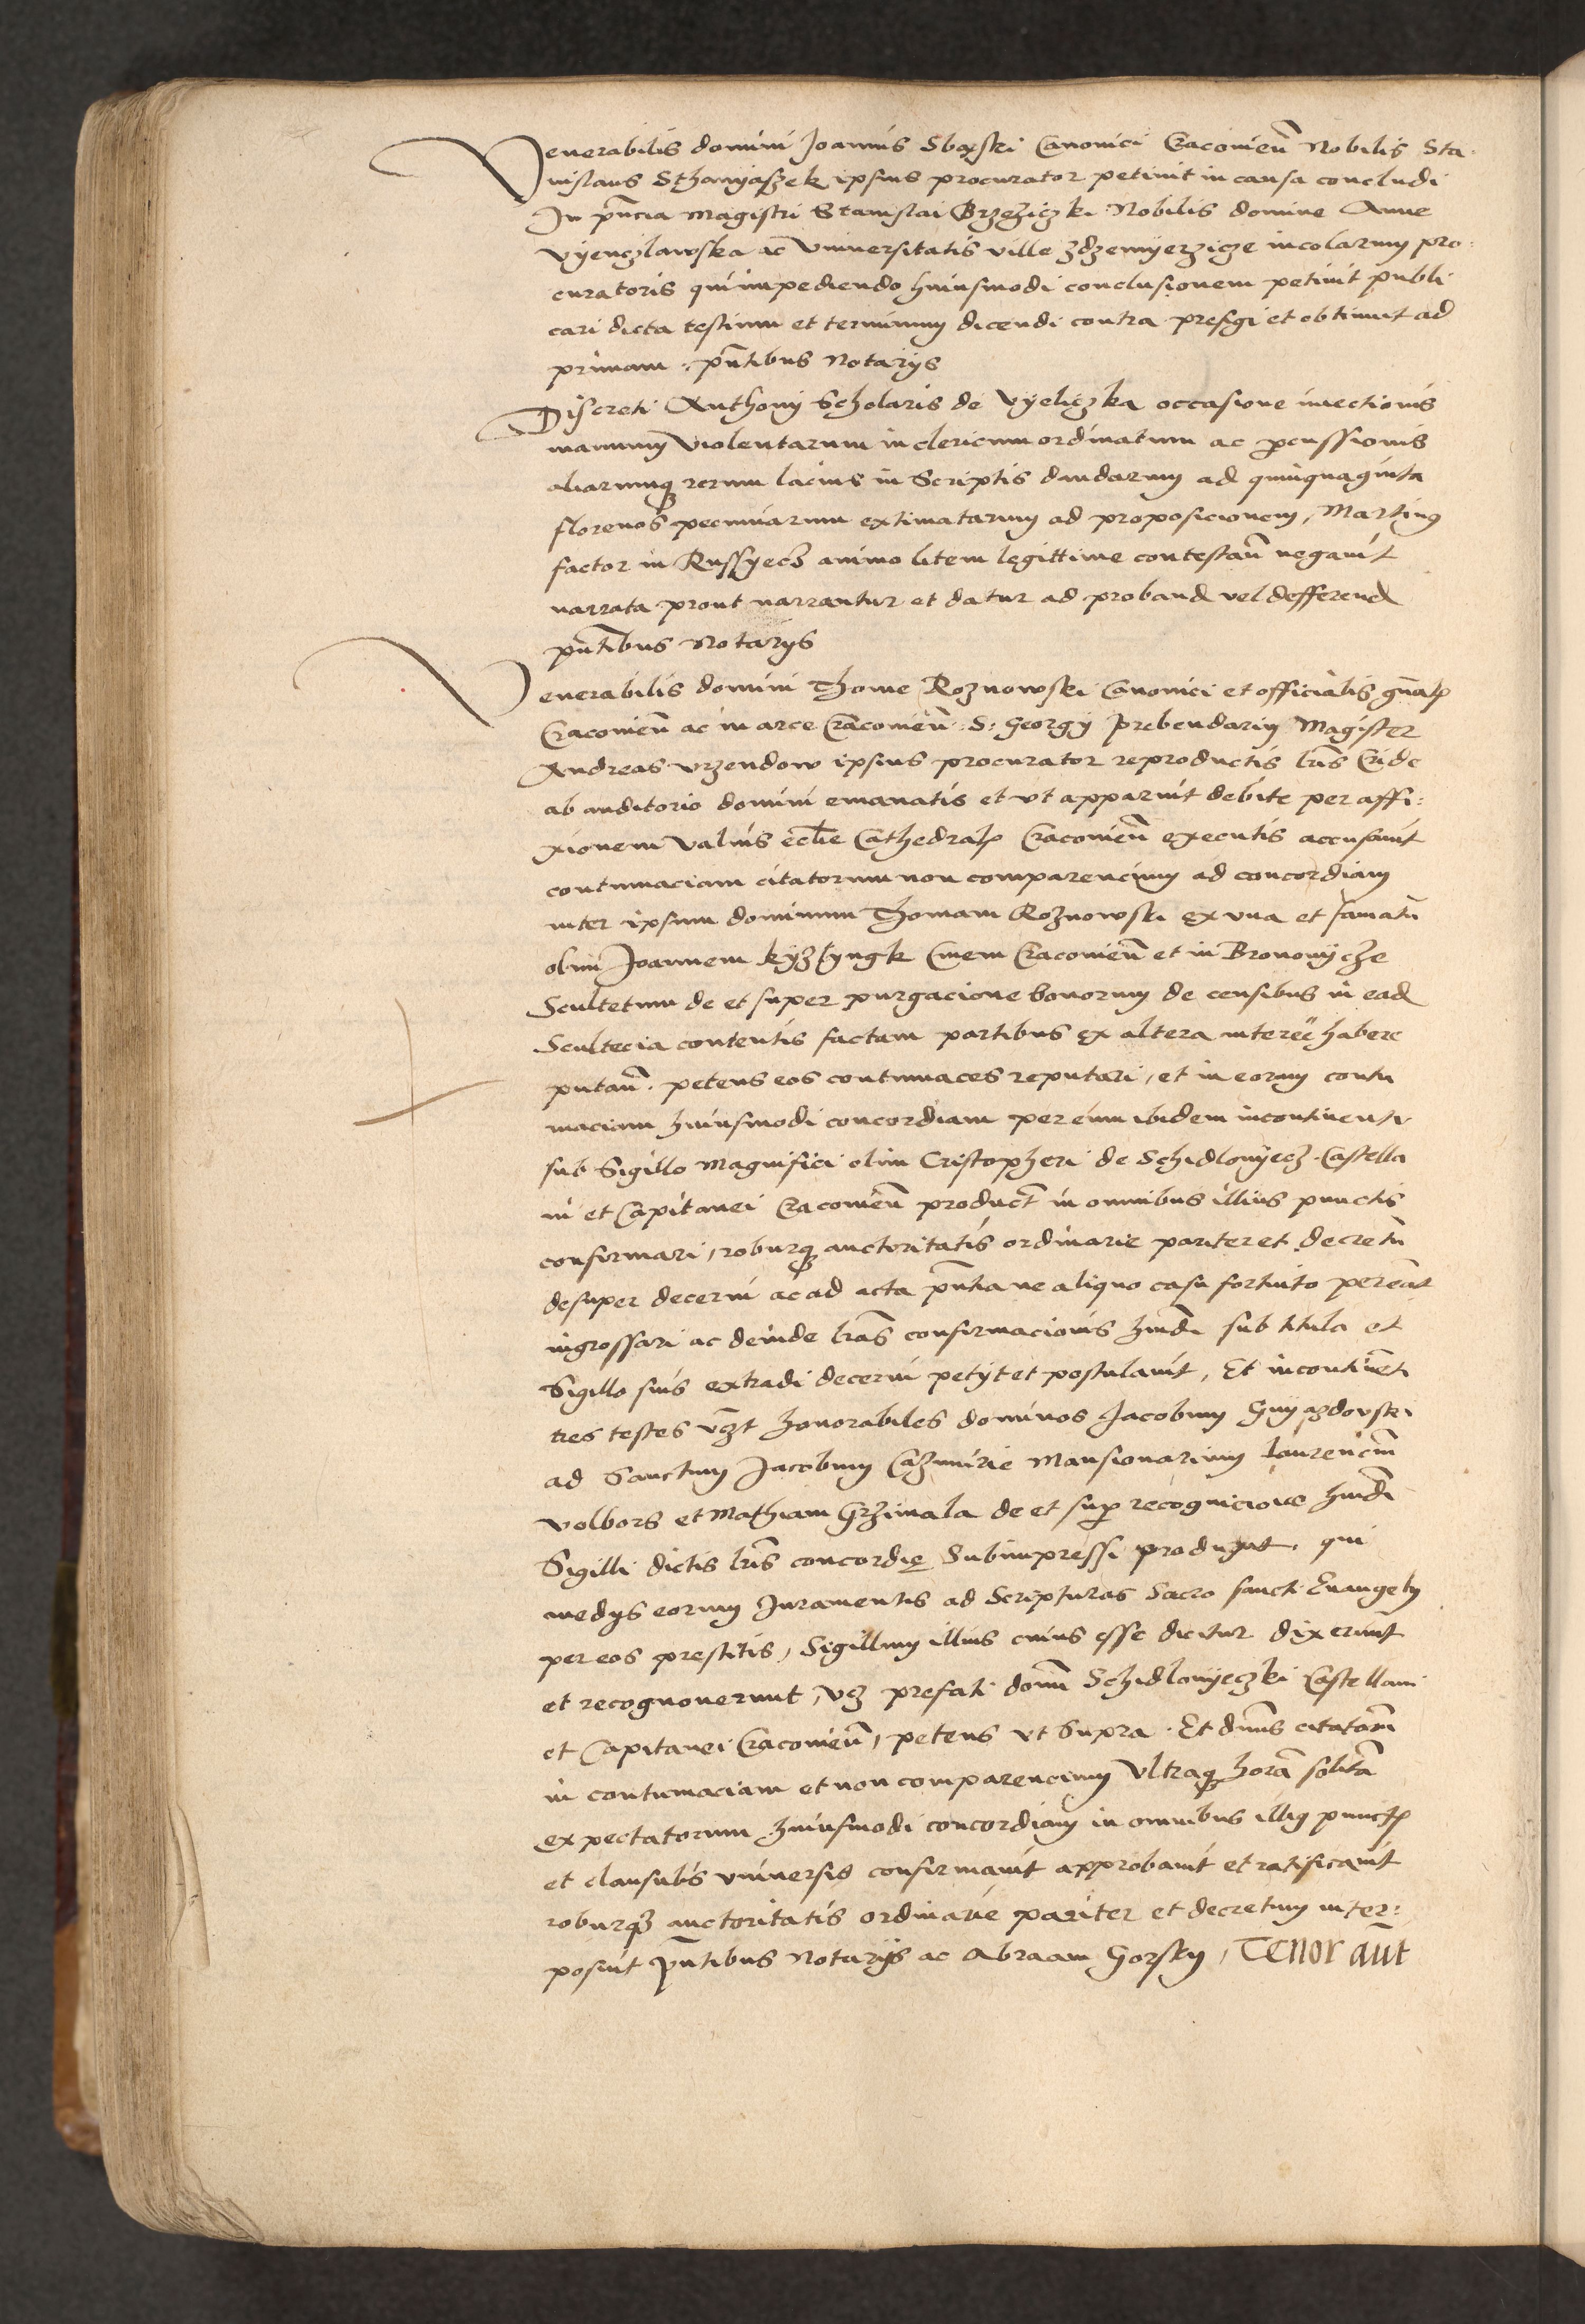 Venerabilis domini Joannis Sbaski Canonici Cracovien̄ Nobilis Sta-
nislaus Sthanijaszek ipsius procurator petivit in causa concludi
In pn̄cia Magistri Stanislai Brzeziczki Nobilis domine Anne
Vÿenczlawska ac Universitatis ville Zdzemÿerzicze incolarum pro:
curatoris qui impediendo huiusmodi conclusionem petivit publi
cari dicta testium et terminum dicendi contra prefigi et obtinuit ad
primam. pn̄tibus Notarijs
Discreti Anthonij Scholaris de Vÿeliczka occasione iniectionis
manuum violentarum in clericum ordinatum ac percussionis
aliarumq rerum lacius in Scriptis dandarum ad quinquaginta
florenos pecuniarum extimatarum ad proposicionem, Martinus
factor in Russÿecz animo litem legittime contestan̄ negavit
narrata prout narrantur et datur ad proband vel defferend
pn̄tibus Notarijs
Venerabilis domini Thome Roznowski Canonici et officialis gn̄alis
Cracovien̄ ac in arce Cracovien̄ S: Georgij prebendarij Magister
Andreas Urzendow ipsius procurator reproductis lr̄is Cride
ab auditorio domini emanatis et ut apparuit debite per affi:
xionem valvis eccl̄ie Cathedralis Cracovien̄ executis accusavit
contumaciam citatorum non comparencium ad concordiam
inter ipsum dominum Thomam Roznowski ex una et famatū
olim Joannem Kÿzlyngk Civem Cracovien̄ et in Bronowÿcze
Scultetum de et super purgacione bonorum de censibus in ead
Scultecia contentis factam partibus ex altera interēē habere
putan̄. petens eos contumaces reputari, et in eorum contu
maciam huiusmodi concordiam per eum ibidem incontinenti
sub Sigillo Magnifici olim Cristopheri de Schidlowÿecz Castella
ni et Capitanei Cracovien̄ product in omnibus illius punctis
confirmari, roburq auctoritatis ordinarie pariter et decretū
desuper decerni ac ad acta pn̄tia ne aliquo casu fortuito pereāt
ingrossari ac deinde lr̄as confirmacionis hmōi sub titulo et
Sigillo suis extradi decerni petijt et postulavit, Et incontinēti
tres testes vz̄t honorabiles dominos Jacobum Gnijazdovski
ad Sanctum Jacobum Cazimirie Mansionarium Laurenciū
Volbors et Mathiam Grzimala de et super recognicione hmōi
Sigilli dictis lr̄is concordie Subimpressi produxit, qui
medijs eorum Juramentis ad Scripturas Sacro sancti Evangelij
per eos prestitis, Sigillum illius cuius esse dicitur dixerunt
et recognoverunt, vz prefati domī Schidlowÿeczki Castellani
et Capitanei Cracovien̄, petens ut supra. Et dn̄us citatorū
in contumaciam et non comparencium Ultraq horā solitā
expectatorum huiusmodi concordiam in omnibus illius punctis
et clausulis universis confirmavit approbavit et ratificavit
roburqz auctoritatis ordinarie pariter et decretum inter:
posuit pn̄tibus Notarijs ac Abraam Gorskij, Tenor aut